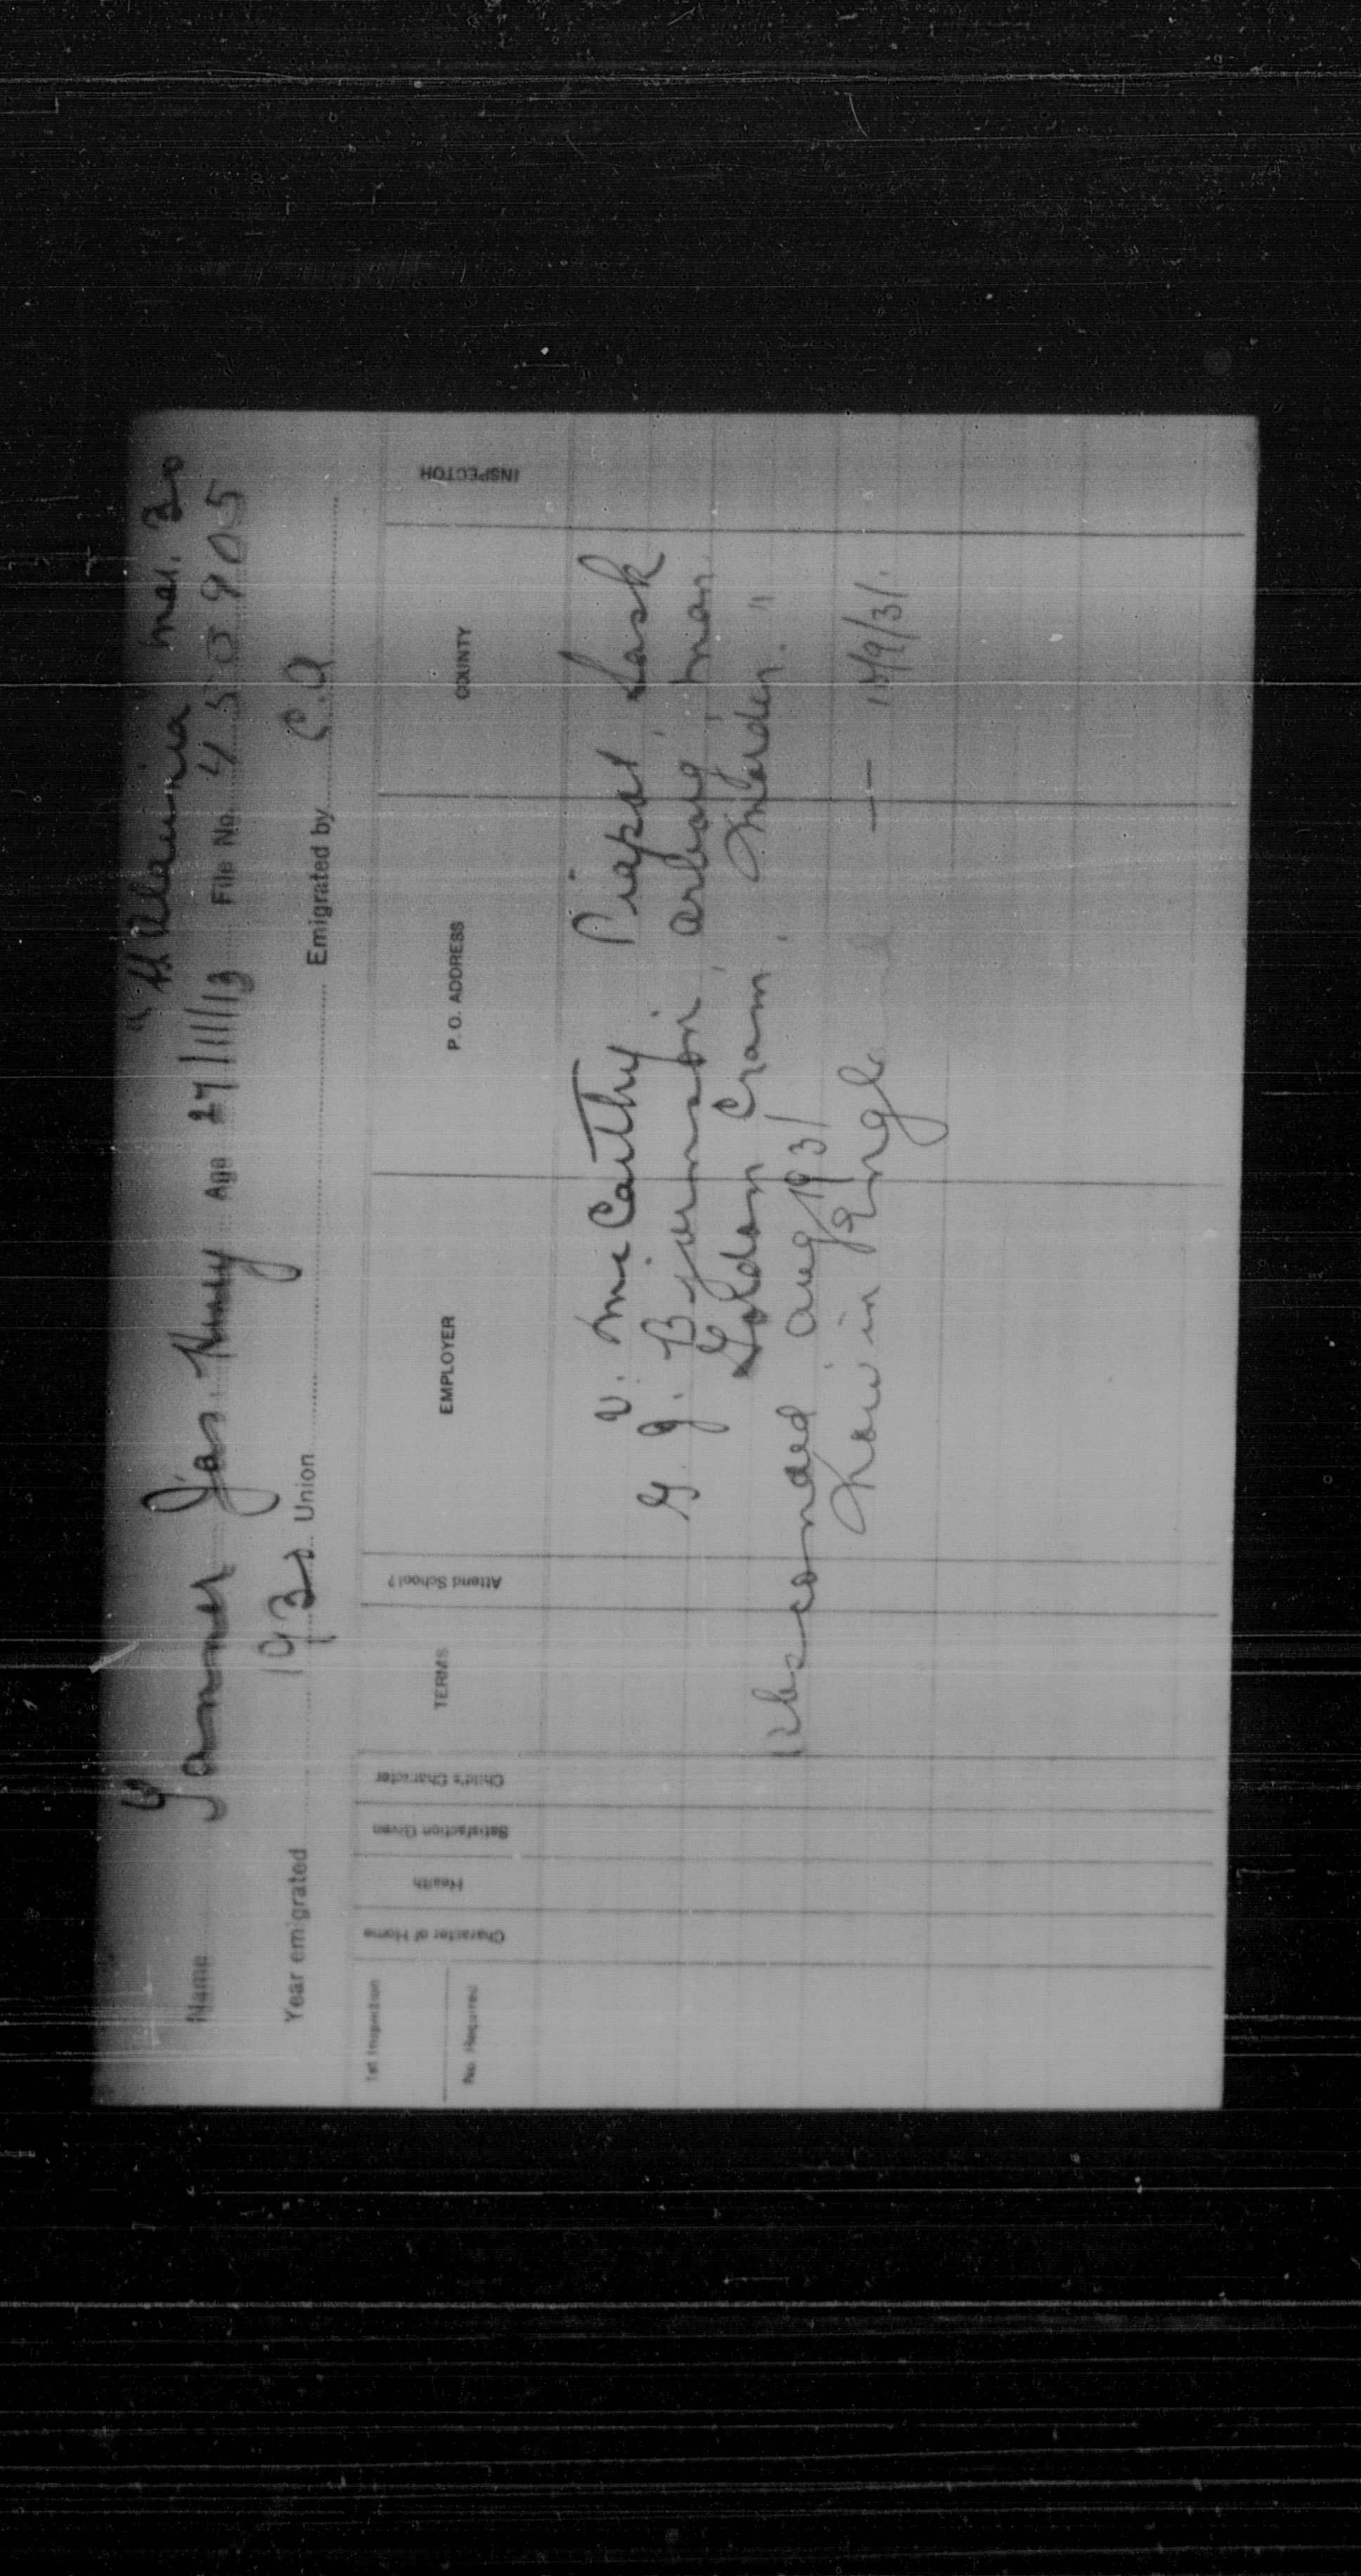 Mar. 30
Name Tanner Jas. Henry Age 27/11/13 File No. 450905
Year emigrated 1930 Union Emigrated by C.A
1st Inspection
No. Required
Character of Home
Health
Satisfaction Given
Child's Character
TERMS
Attend School?
EMPLOYER
P. O. ADDRESS
COUNTY
INSPECTOR
V. McCarthy Piapot, Sask
G. J. Bjornson, Arborg, Man.
Goldon Cram, Marden. "
Absconded Aug 1931
Now in Engl — /9/31.